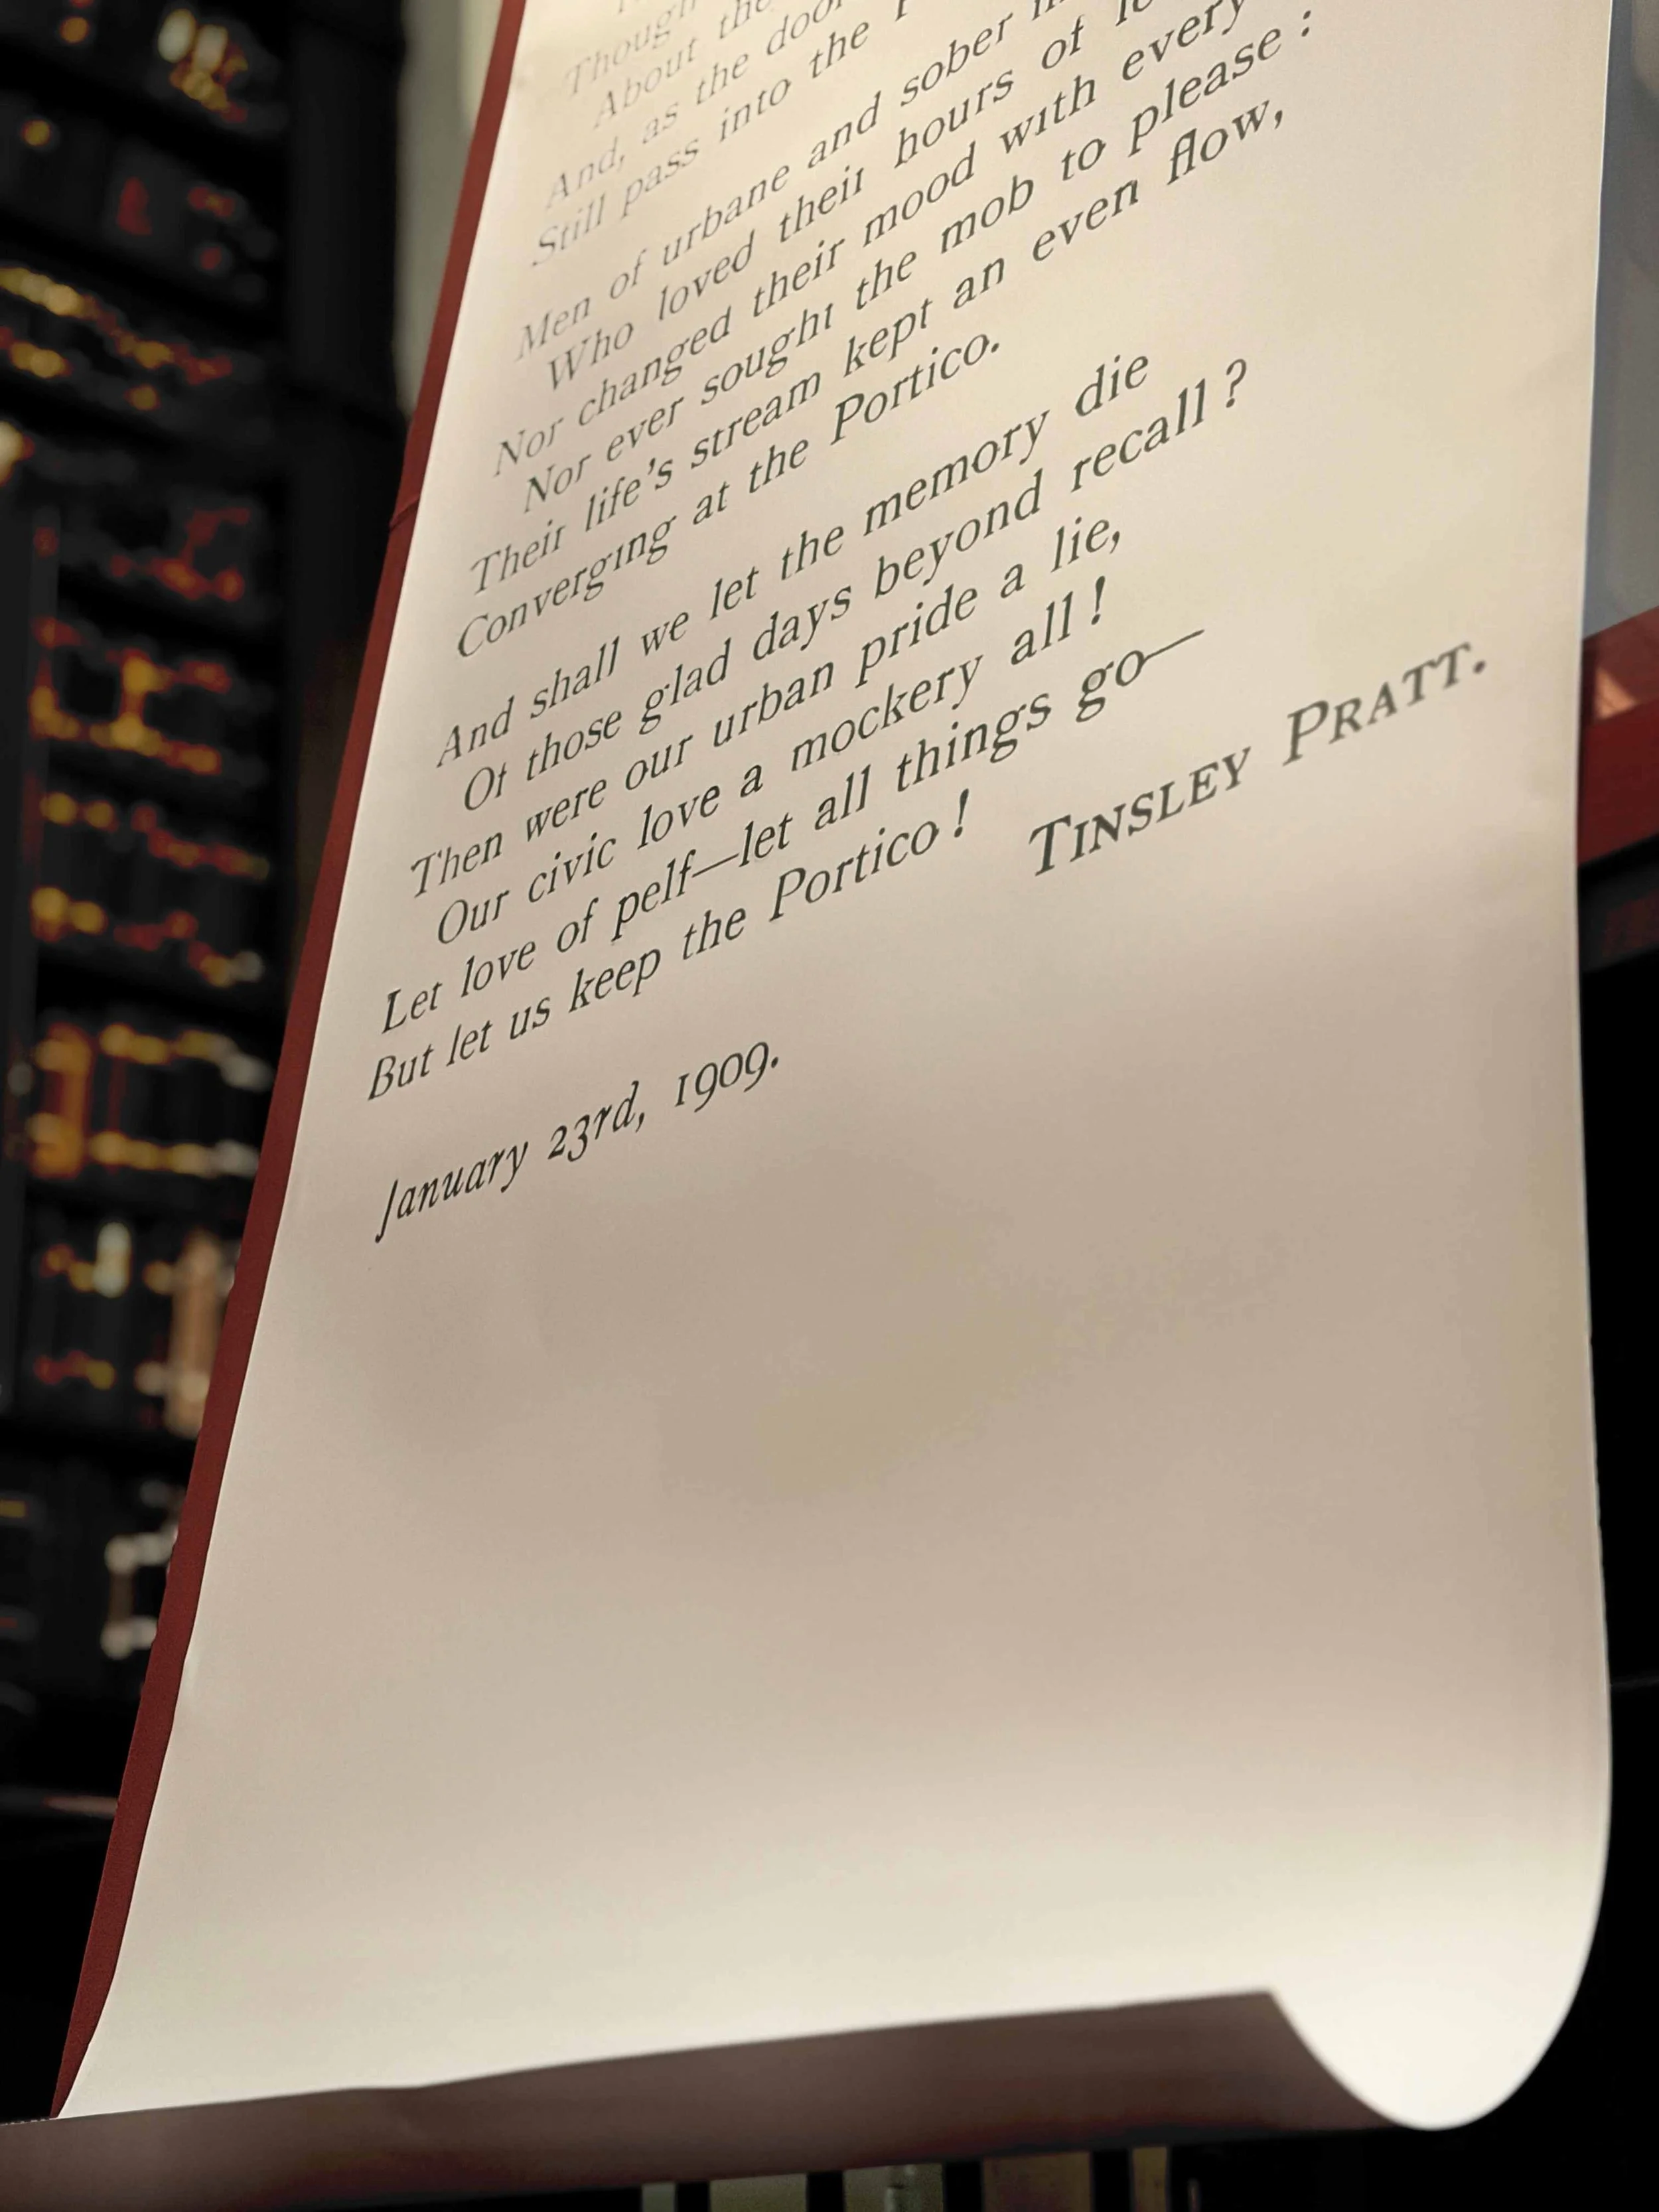 Though
About the
And, as the door
Still pass into the
Men of urbane and sober
Who loved their hours of
Nor changed their mood with every
Nor ever sought the mob to please :
Their life's stream kept an even flow,
Converging at the Portico.
And shall we let the memory die
Of those glad days beyond recall ?
Then were our urban pride a lie,
Our civic love a mockery all !
Let love of pelf—let all things go—
But let us keep the Portico !
TINSLEY PRATT.
January 23rd, 1909.